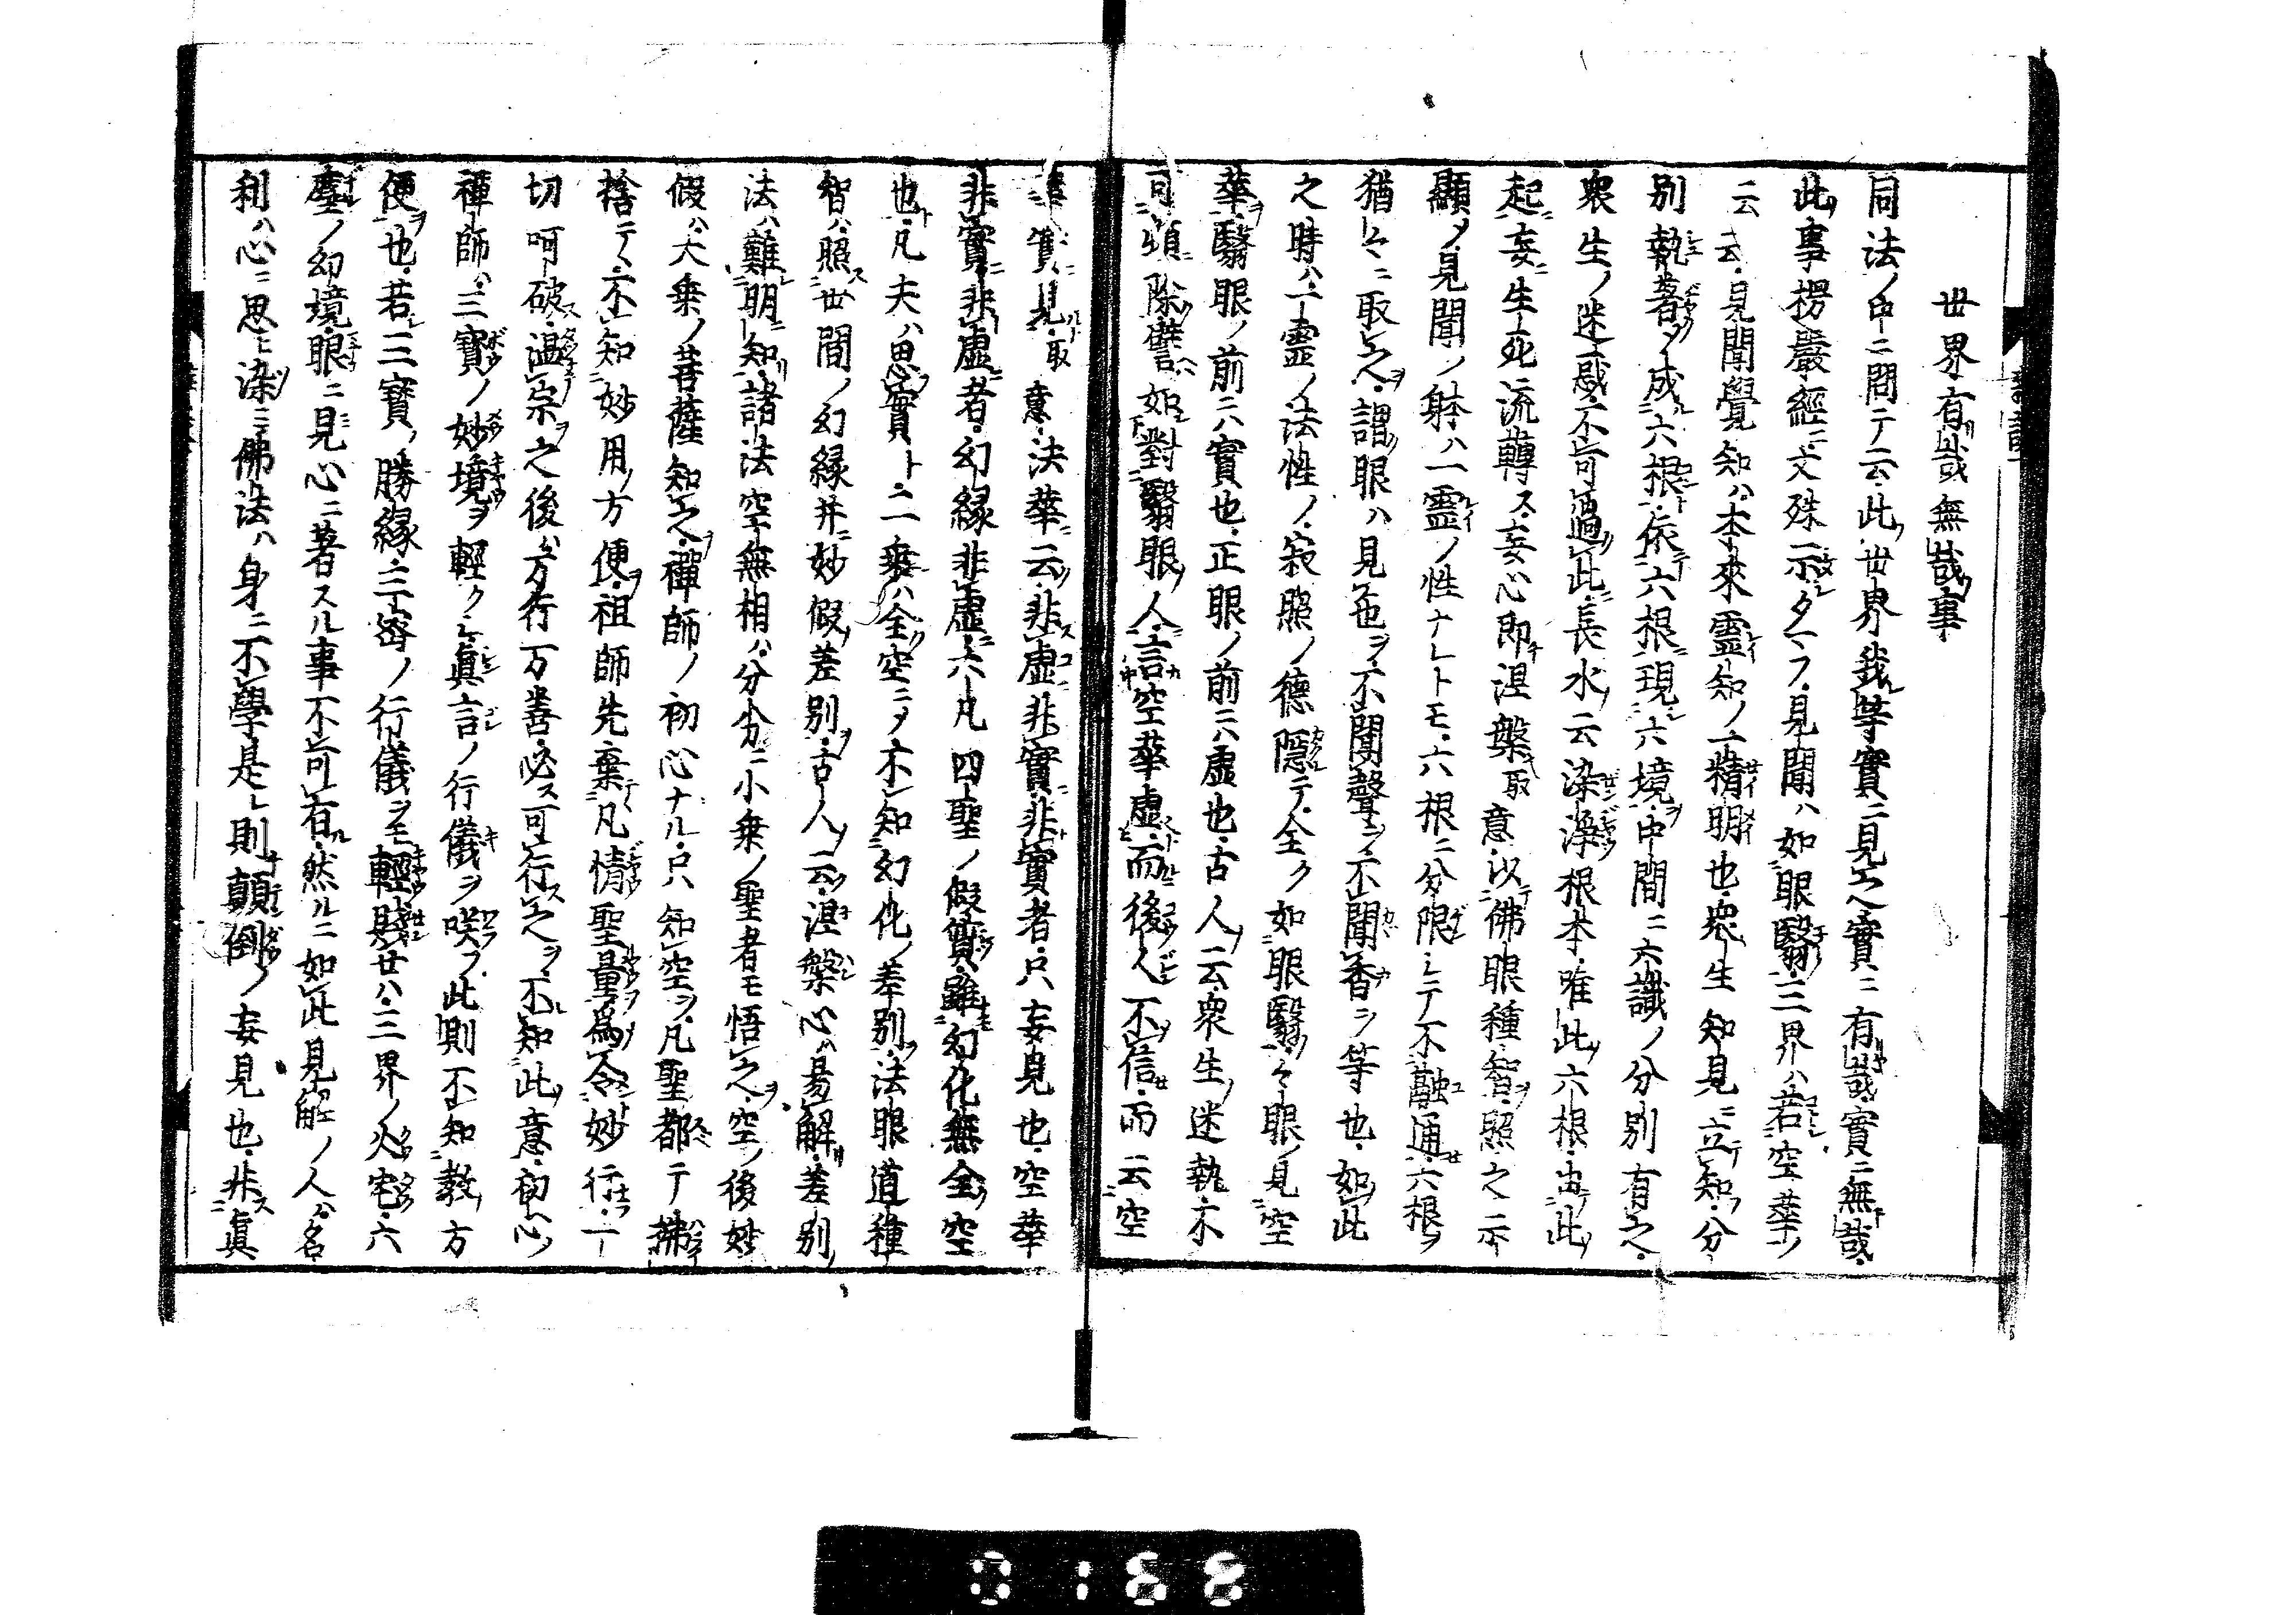 世界有哉無哉事
同法ノ中ニ問テ云此世界我等實ニ見之實ニ有哉實ニ無哉
此事楞嚴經ニ文殊示シタマフ見聞ハ如眼翳三界ハ若空華ノ
云云見聞覺知ハ本來靈知ノ一精明也衆生知見ニ立知分
別執著シテ成六根依六根現六境中間ニ六識ノ分別有之
衆生ノ迷惑不可過此長水云染淨根本唯此六根由此
起妄生死流轉ス妄心即涅槃取意以佛眼種智照之示
顯シテ見聞ノ躰ハ一靈ノ性ナレトモ六根ニ分限シテ不融通六根ヲ
猶シ々ニ取之謂眼ハ見色ヲ不聞聲ヲ不聞香シ等也如此
之時ハ一靈ノ法性ノ寂照ノ德隱テ全ク如眼翳々眼見空
華翳眼ノ前ニハ實也正眼ノ前ニハ虛也古人云衆生迷執不
可頓除譬如對翳眼人言空華虛而後人不信而云空
華實ニ見取意法華云非虛非實非實者只妄見也空華
非實非虛者幻緣非虛六凡四聖ノ假實雖幻化無全空
也凡夫ハ思實ト二乘ハ全空ニシテ不知幻化差別法眼道種
智ハ照ス世間ノ幻緣并妙假差別古人云涅槃心ハ易解差別
法ハ難明知諸法空無相ハ分分ニ小乘ノ聖者モ悟之空ノ後妙
假ハ大乘ノ菩薩知之禪師ノ初心ナル只知空ヲ凡聖都テ拂
捨テテ不知妙用方便祖師先棄凡情聖量爲令妙行一
切呵破溫宗之後ハ万行万善必ス可行之不知此意初心ノ
禪師ハ三寶ノ妙境ヲ輕クシ眞言ノ行儀ヲ咲フ此則不知教方
便也若三寶ノ勝緣三密ノ行儀ヲモ輕賤せハ三界ノ火宅六
塵ノ幻境眼ニ見心ニ著スル事不可有然ルニ如此見解ノ人ハ名
利ハ心ニ思ヒ染ミ佛法ハ身ニ不學是レ則顚倒ノ妄見也非眞
0168